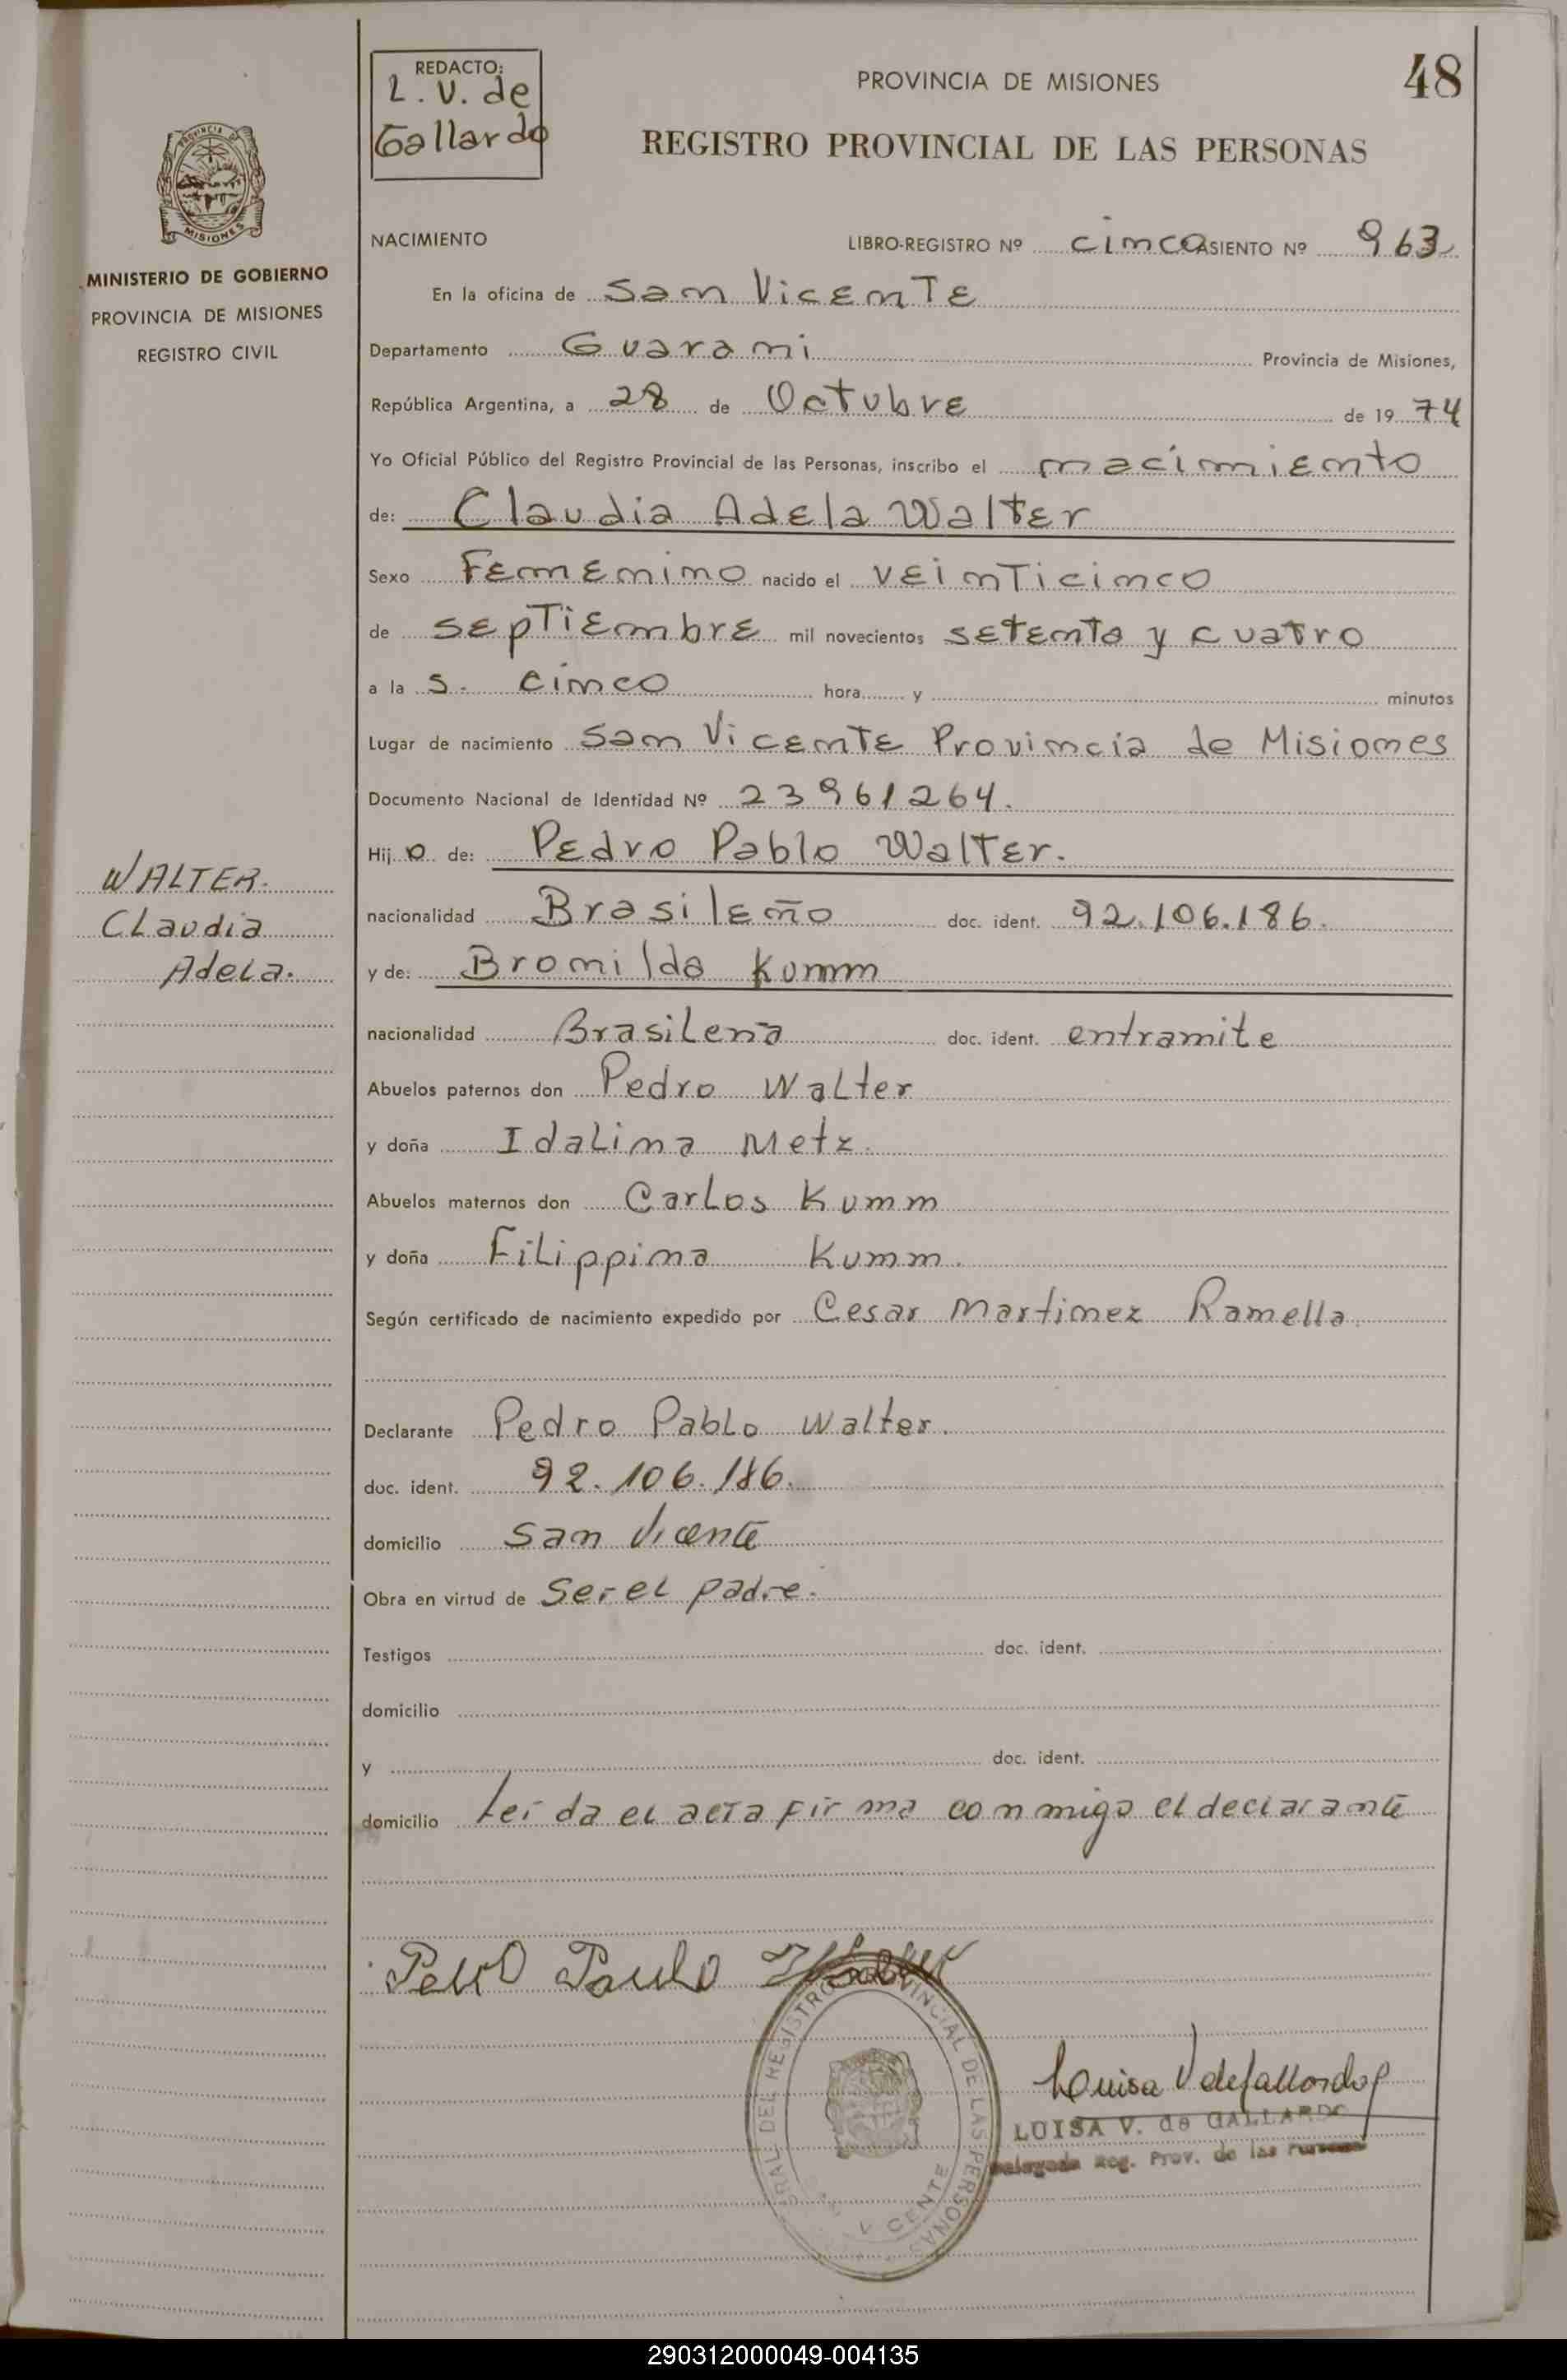 REDACTO:
L. V. de
Gallardo
PROVINCIA DE MISIONES
48
REGISTRO PROVINCIAL DE LAS PERSONAS
MISIONES
MINISTERIO DE GOBIERNO
PROVINCIA DE MISIONES
REGISTRO CIVIL
NACIMIENTO LIBRO-REGISTRO Nº cinco ASIENTO Nº 963
En la oficina de San Vicente
Departamento Guarani Provincia de Misiones,
República Argentina, a 28 de Octubre de 19 74
Yo Oficial Público del Registro Provincial de las Personas, inscribo el nacimiento
de: Claudia Adela Walter
Sexo Femenino nacido el veinticinco
de septiembre mil novecientos setenta y cuatro
a la s. cinco hora y minutos
Lugar de nacimiento San Vicente Provincia de Misiones
Documento Nacional de Identidad Nº 23961264.
Hij o de: Pedro Pablo Walter.
nacionalidad Brasileño doc. ident. 92.106.186.
y de: Bronilda Kumm
nacionalidad Brasileña doc. ident. entramite
Abuelos paternos don Pedro Walter
y doña Idalina Metz.
Abuelos maternos don Carlos Kumm
y doña Filippina Kumm.
Según certificado de nacimiento expedido por Cesar Martinez Ramella.
Declarante Pedro Pablo Walter.
doc. ident. 92.106.186.
domicilio San Vicente
Obra en virtud de Ser el padre.
Testigos doc. ident.
domicilio
y doc. ident.
domicilio Leida el acta firma conmigo el declarante
WALTER.
Claudia
Adela.
Pedro Paulo Walter
GRAL DEL REGISTRO PROVINCIAL DE LAS PERSONAS
Luisa V de Gallardo
LUISA V. de GALLARDO
Delegada Reg. Prov. de las Personas
290312000049-004135